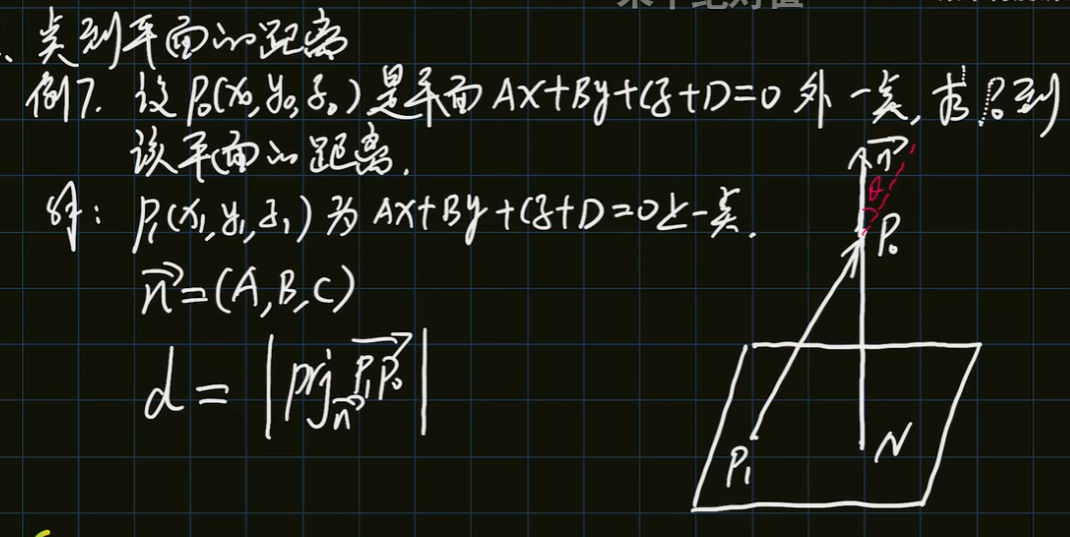 点到平面的距离
例7. 设P₀(x₀,y₀,z₀)是平面Ax+By+Cz+D=0外一点,求P₀到
该平面的距离.
解: P₁(x₁,y₁,z₁)为Ax+By+Cz+D=0上一点.
n⃗=(A,B,C)
d=|Prj_n⃗ P₁P₀⃗|
n⃗
θ
P₀
P₁
N